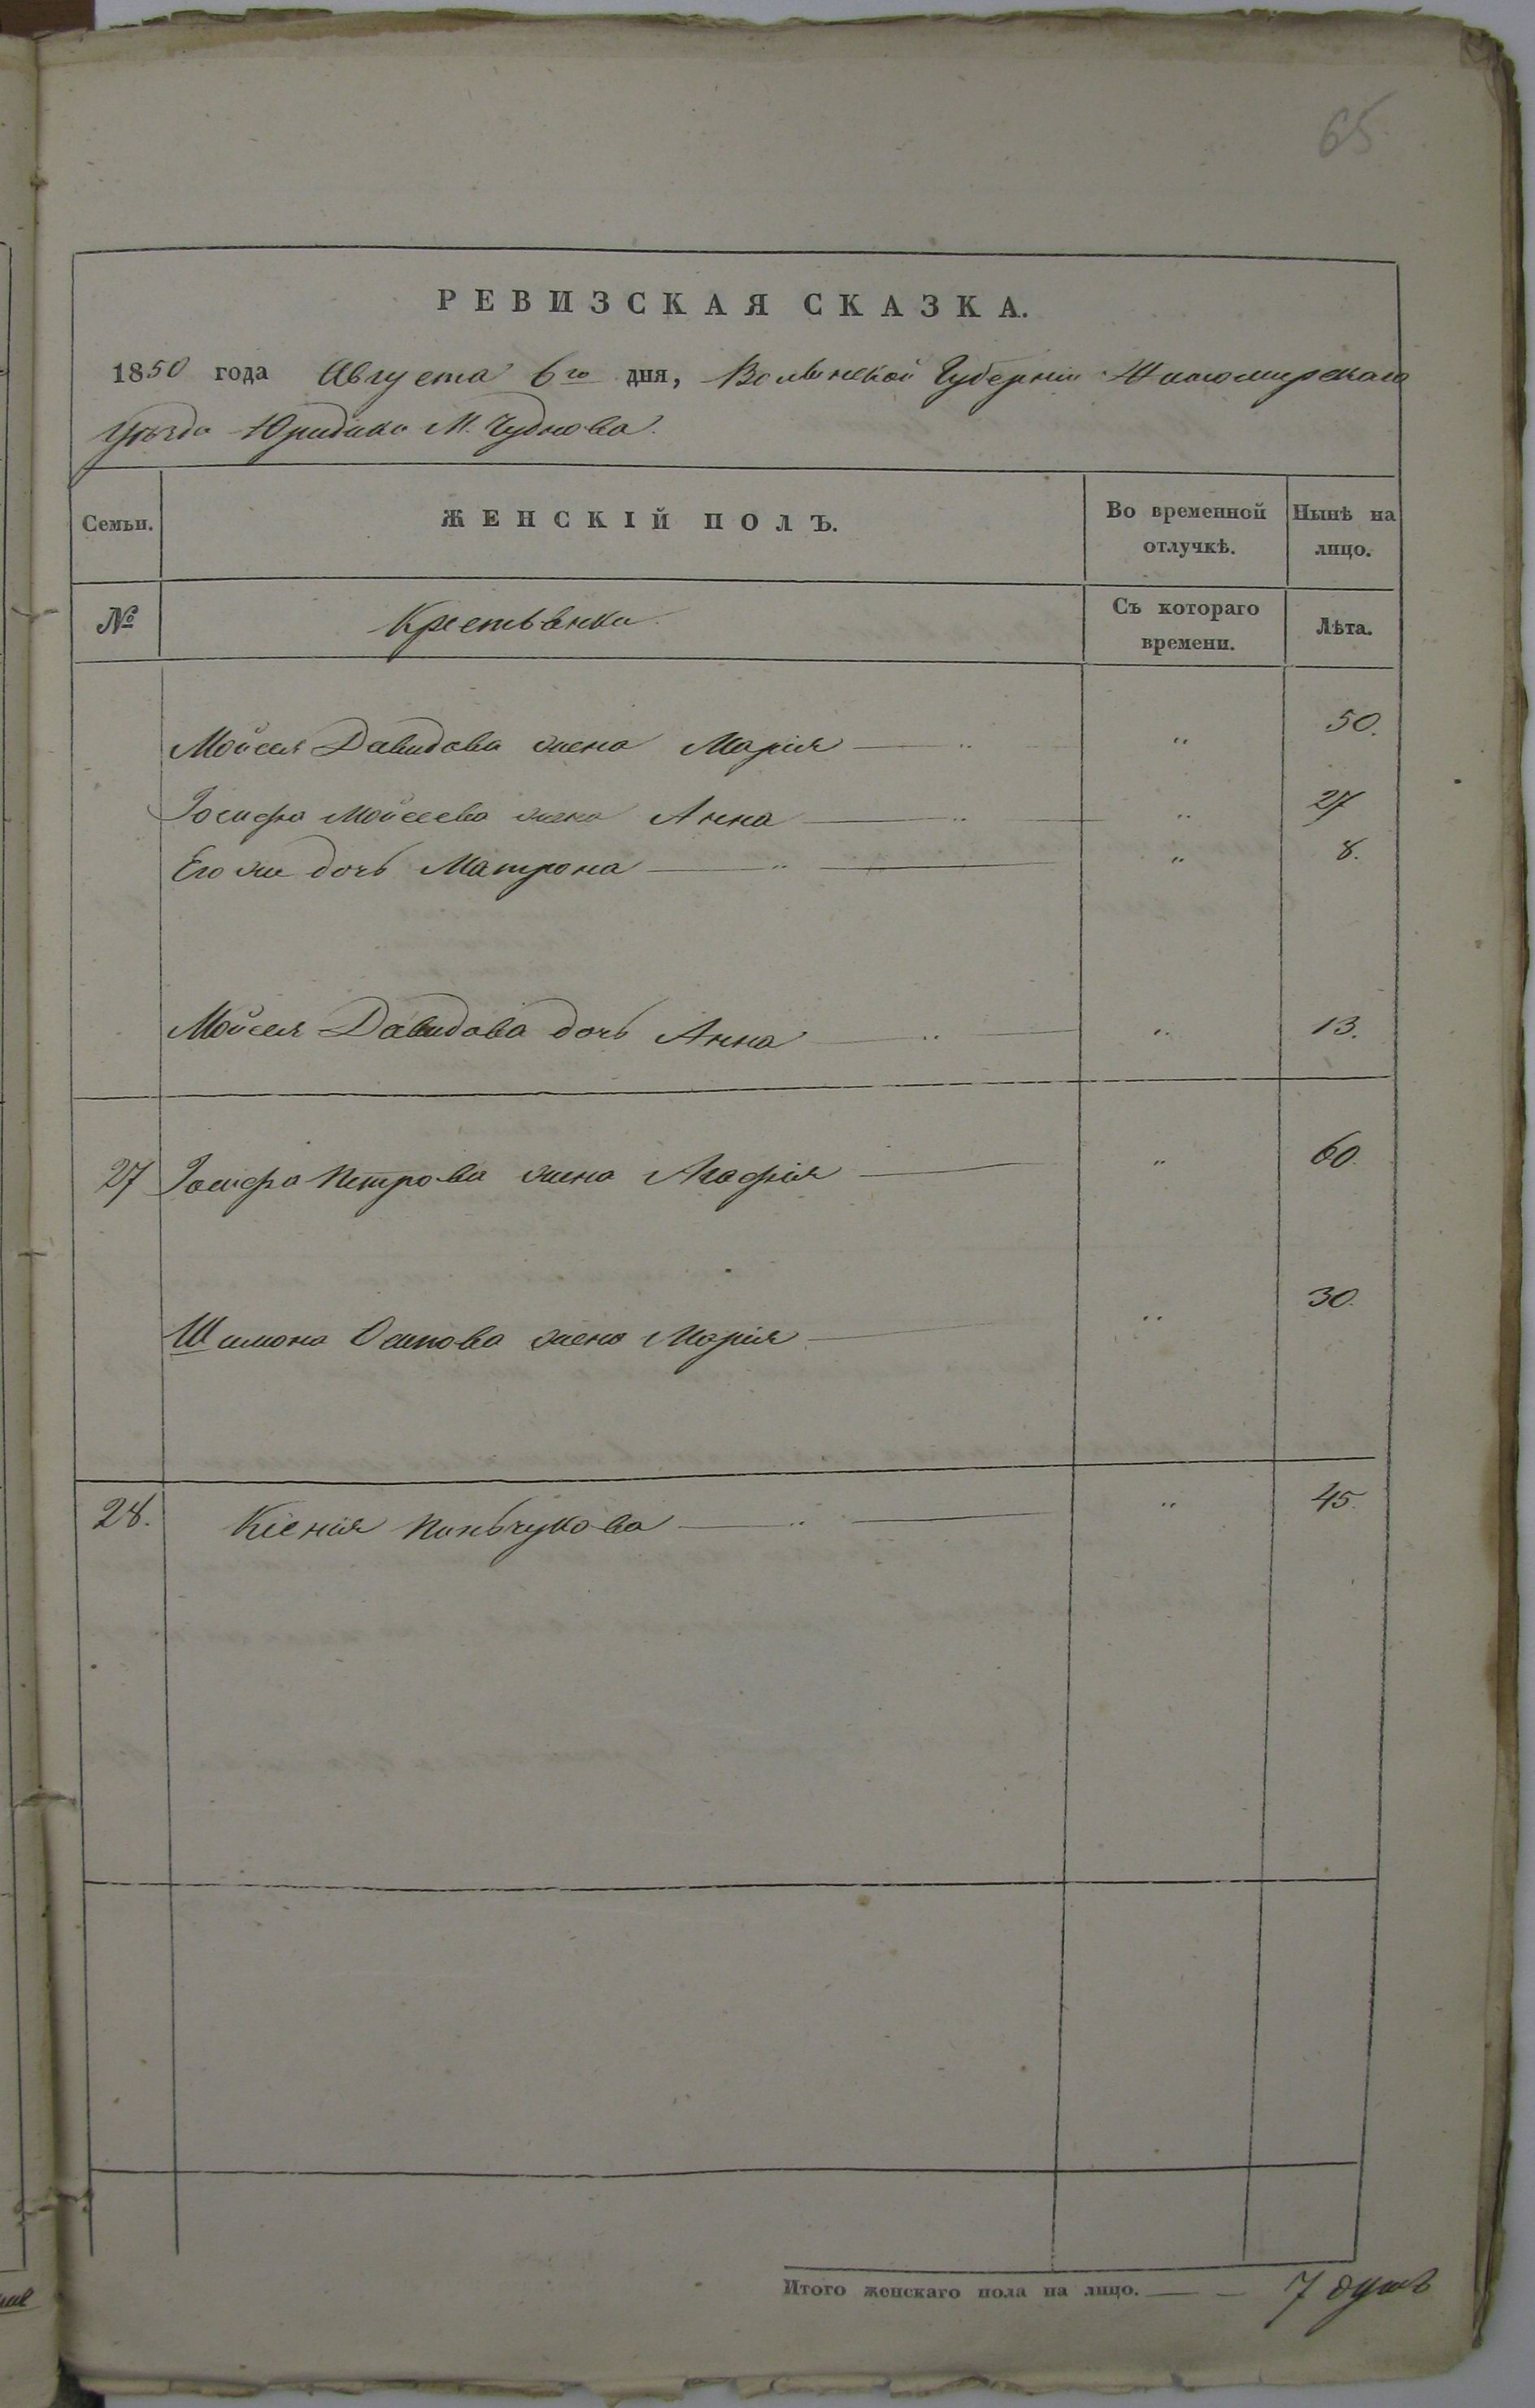 65
РЕВИЗСКАЯ СКАЗКА.
1850 года Августа 6го дня, Волынской Губернии Житомирскаго
Уѣзда Юридики М. Чуднова.
Семьи.
ЖЕНСКІЙ ПОЛЪ.
Во временной отлучкѣ.
Нынѣ на лицо.
№
Крестьянки
Съ котораго времени.
Лѣта.
Мойсея Давидова жена Марія — „ „ 50.
Іосифа Мойсеева жена Анна — „ „ 27
Его же дочь Матрона — „ — „ 8.
Мойсея Давидова дочь Анна — „ — „ 13.
27 Іосифа Петрова жена Агафія — „ 60.
Шимона Осипова жена Марія — „ 30.
28. Ксенія — „ — „ 45.
Итого женскаго пола на лицо. — — 7 душъ